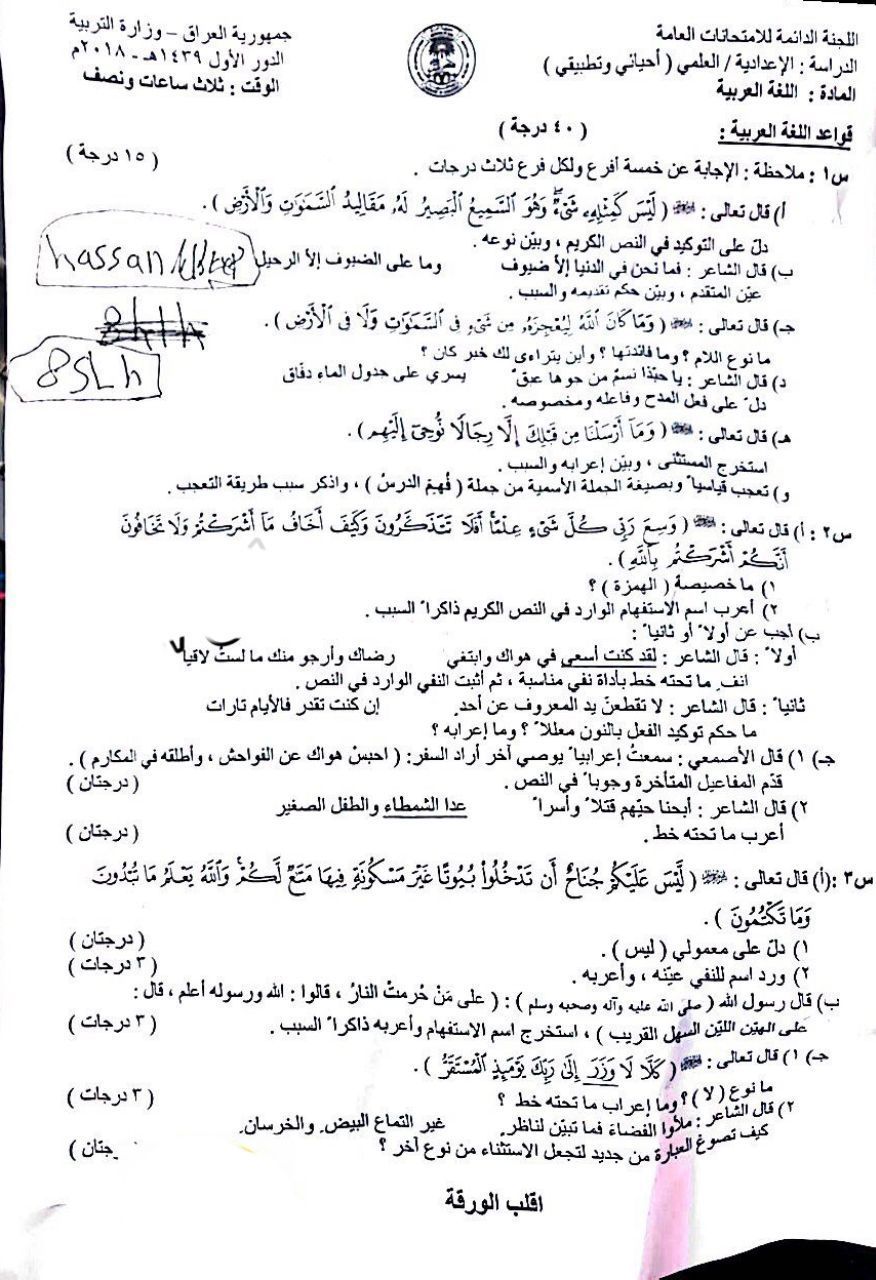 اللجنة الدائمة للامتحانات العامة
الدراسة : الإعدادية / العلمي ( أحيائي وتطبيقي )
المادة : اللغة العربية
جمهورية العراق - وزارة التربية
الدور الأول ١٤٣٩هـ - ٢٠١٨م
الوقت : ثلاث ساعات ونصف
قواعد اللغة العربية : ( ٤٠ درجة )
س١ : ملاحظة : الإجابة عن خمسة أفرع ولكل فرع ثلاث درجات . ( ١٥ درجة )
أ) قال تعالى : ( لَيْسَ كَمِثْلِهِ شَيْءٌ وَهُوَ السَّمِيعُ الْبَصِيرُ لَهُ مَقَالِيدُ السَّمَوَاتِ وَالْأَرْضِ ) .
دلّ على التوكيد في النص الكريم ، وبيّن نوعه .
ب) قال الشاعر : فما نحن في الدنيا إلاّ ضيوف وما على الضيوف إلاّ الرحيل
hassan
عيّن المتقدم ، وبيّن حكم تقديمه والسبب .
جـ) قال تعالى : ( وَمَا كَانَ اللَّهُ لِيُعْجِزَهُ مِن شَيْءٍ فِي السَّمَوَاتِ وَلَا فِي الْأَرْضِ ) .
ما نوع اللام ؟ وما فائدتها ؟ وأين يتراءى لك خبر كان ؟
د) قال الشاعر : يا حبّذا نسمٌ من جوها عبقٌ يسري على جدول الماء دفّاق
8SLh
دلّ على فعل المدح وفاعله ومخصوصه .
هـ) قال تعالى : ( وَمَا أَرْسَلْنَا مِن قَبْلِكَ إِلَّا رِجَالًا نُّوحِي إِلَيْهِم ) .
استخرج المستثنى ، وبيّن إعرابه والسبب .
و) تعجب قياسياً وبصيغة الجملة الأسمية من جملة ( فُهِمَ الدرسُ ) ، واذكر سبب طريقة التعجب .
س٢ : أ) قال تعالى : ( وَسِعَ رَبِّي كُلَّ شَيْءٍ عِلْمًا أَفَلَا تَتَذَكَّرُونَ وَكَيْفَ أَخَافُ مَا أَشْرَكْتُمْ وَلَا تَخَافُونَ
أَنَّكُمْ أَشْرَكْتُم بِاللَّهِ ) .
١) ما خصيصة ( الهمزة ) ؟
٢) أعرب اسم الاستفهام الوارد في النص الكريم ذاكراً السبب .
ب) أجب عن أولاً أو ثانياً :
أولاً : قال الشاعر : لقد كنت أسعى في هواك وابتغي رضاك وأرجو منك ما لست لاقيا
انفِ ما تحته خط بأداة نفي مناسبة ، ثم أثبت النفي الوارد في النص .
ثانياً : قال الشاعر : لا تقطعنّ يد المعروف عن أحدٍ إن كنت تقدر فالأيام تارات
ما حكم توكيد الفعل بالنون معللاً ؟ وما إعرابه ؟
جـ) ١) قال الأصمعي : سمعتُ إعرابياً يوصي آخر أراد السفر: ( احبسْ هواك عن الفواحش ، وأطلقه في المكارم ) .
قدّم المفاعيل المتأخرة وجوباً في النص . ( درجتان )
٢) قال الشاعر : أبحنا حيّهم قتلاً وأسراً عدا الشمطاء والطفل الصغير
أعرب ما تحته خط . ( درجتان )
س٣ :(أ) قال تعالى : ( لَّيْسَ عَلَيْكُمْ جُنَاحٌ أَن تَدْخُلُوا بُيُوتًا غَيْرَ مَسْكُونَةٍ فِيهَا مَتَاعٌ لَّكُمْ وَاللَّهُ يَعْلَمُ مَا تُبْدُونَ
وَمَا تَكْتُمُونَ ) .
١) دلّ على معمولي ( ليس ) . ( درجتان )
٢) ورد اسم للنفي عيّنه ، وأعربه . ( ٣ درجات )
ب) قال رسول الله ( صلى الله عليه وآله وصحبه وسلم ) : ( على مَنْ حُرمتْ النارُ ، قالوا : الله ورسوله أعلم ، قال :
على الهيّن الليّن السهل القريب ) ، استخرج اسم الاستفهام وأعربه ذاكراً السبب . ( ٣ درجات )
جـ) ١) قال تعالى : ( كَلَّا لَا وَزَرَ إِلَى رَبِّكَ يَوْمَئِذٍ الْمُسْتَقَرُّ ) .
ما نوع ( لا ) ؟ وما إعراب ما تحته خط ؟ ( ٣ درجات )
٢) قال الشاعر : ملأوا الفضاءَ فما تبيّن لناظرٍ غير التماع البيض والخرسان
كيف تصوغ العبارة من جديد لتجعل الاستثناء من نوع آخر ؟ جتان )
اقلب الورقة